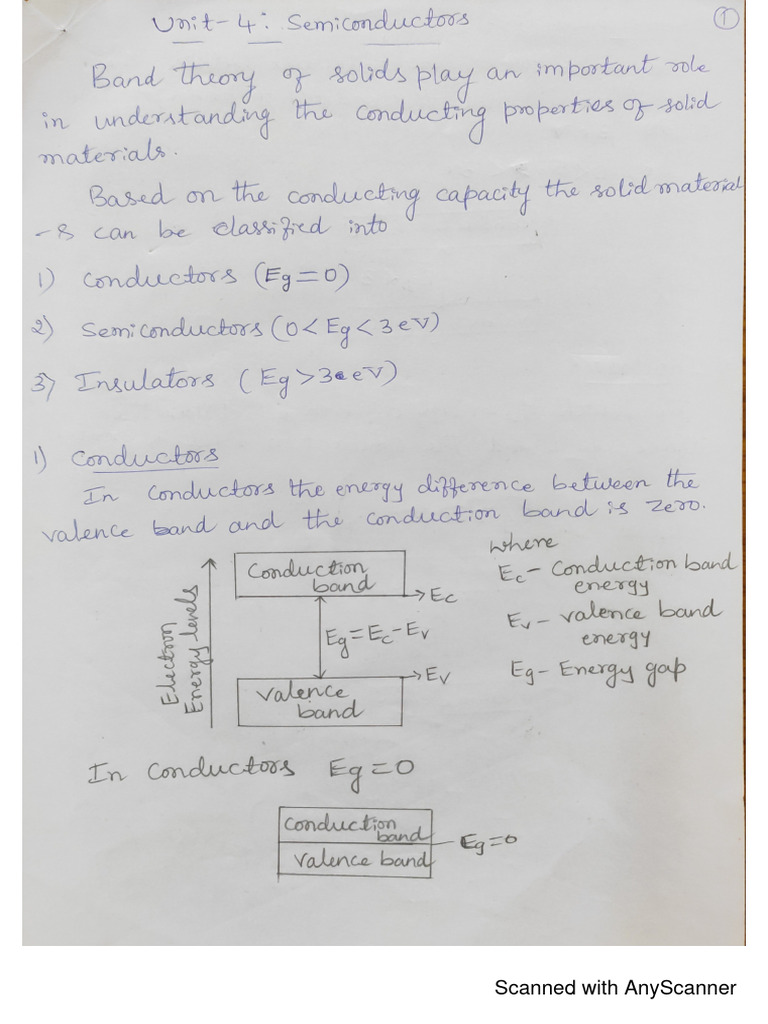 Unit-4: Semiconductors
1
Band theory of solids play an important role
in understanding the conducting properties of solid
materials.
Based on the conducting capacity the solid material
-s can be classified into
1) Conductors (Eg=0)
2) Semiconductors (0<Eg<3eV)
3) Insulators (Eg>3eV)
1) Conductors
In conductors the energy difference between the
valence band and the conduction band is zero.
Electron
Energy levels
Conduction
band
Ec
Eg=Ec-Ev
Ev
Valence
band
where
Ec- Conduction band
energy
Ev- valence band
energy
Eg- Energy gap
In conductors Eg=0
Conduction
band
Valence band
Eg=0
Scanned with AnyScanner